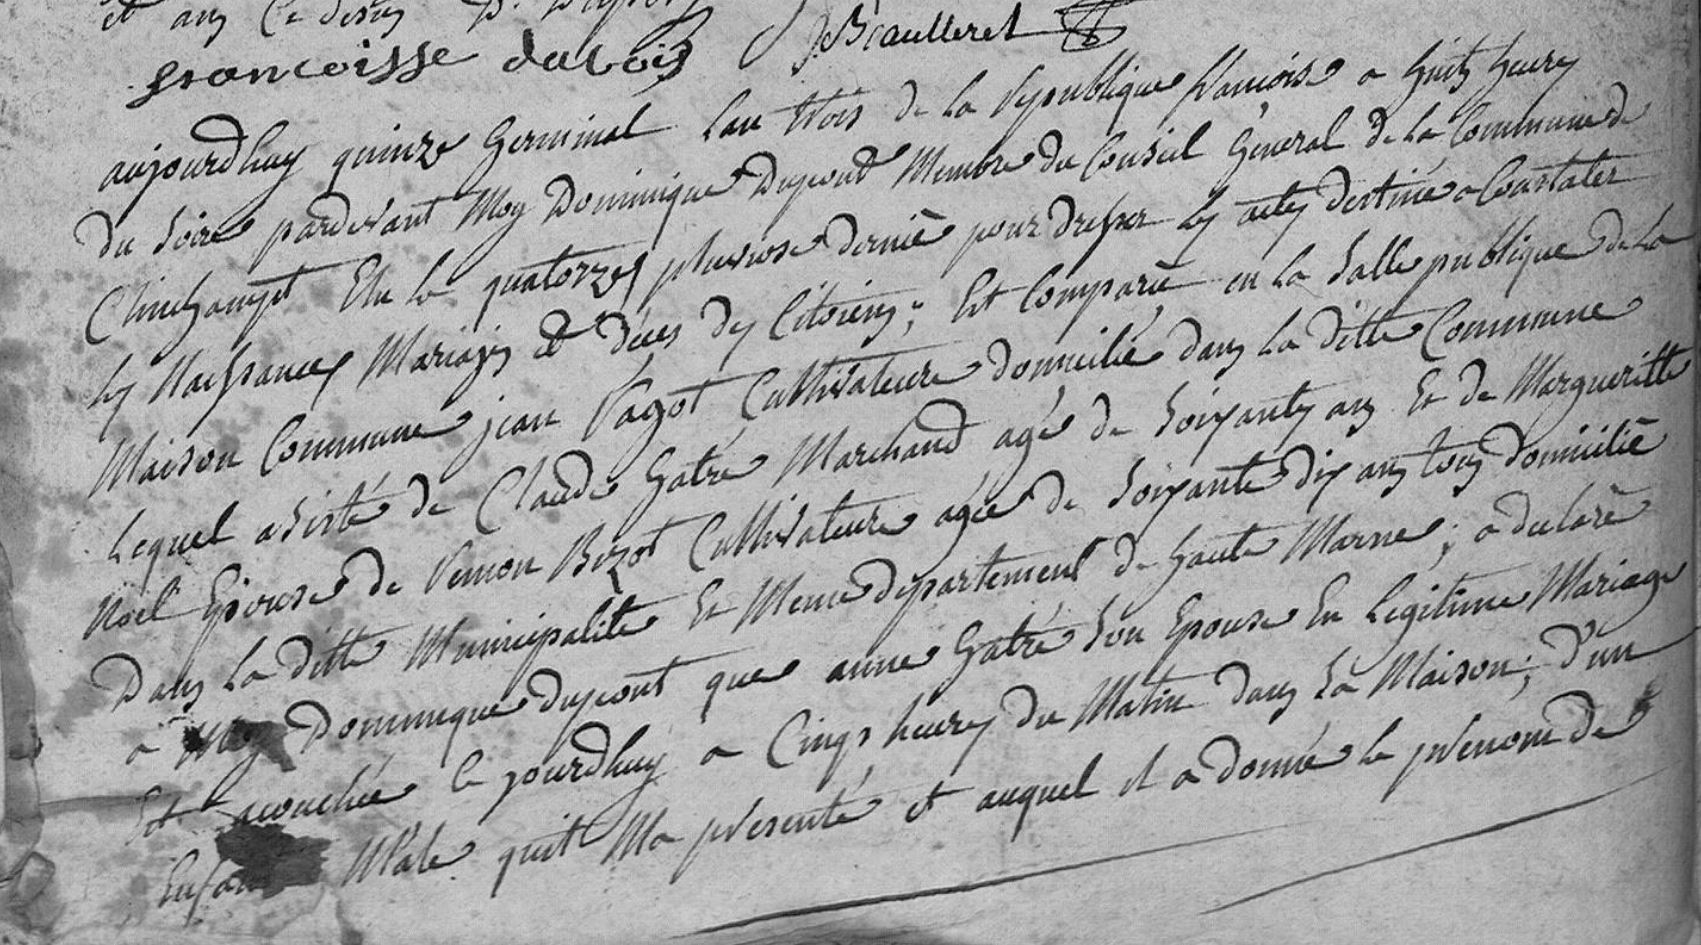 et an Ce desus D. Dupont
francoisse dubois J Beaulleret
aujourdhuy quinze Germinal Lan trois de la republique francoise a huits heures
du soire pardevant Moy Dominique Dupont Membre du Conseil General de la Commune de
Clinchampt Elu le quatorzes pluviose derniè pour dresser les actes destiné a Constater
les Naissances Mariages et déces des Citoiens; Est Comparu en la Salle publique de la
Maison Commune jean Pagot Cultivateure domicilié dans la ditte Commune
Lequel asisté de Claude Gatré Marchand agé de Soixantes ans Et de Margueritte
Noel Epouse de Simon Bizot Cultivateure agée de Soixante dix ans tous domicilié
Dans la ditte Municipalité Et Meme departement de haute Marne; a declaré
a Moy Dominique Dupont que anne Gatré Son Epouse En Legitime Mariage
Est acouchée Ce jourdhuy a Cinqs heures du Matin dans Sa Maison; D'un
Enfant Male quil Ma présenté et auquel il a donné le prénom de